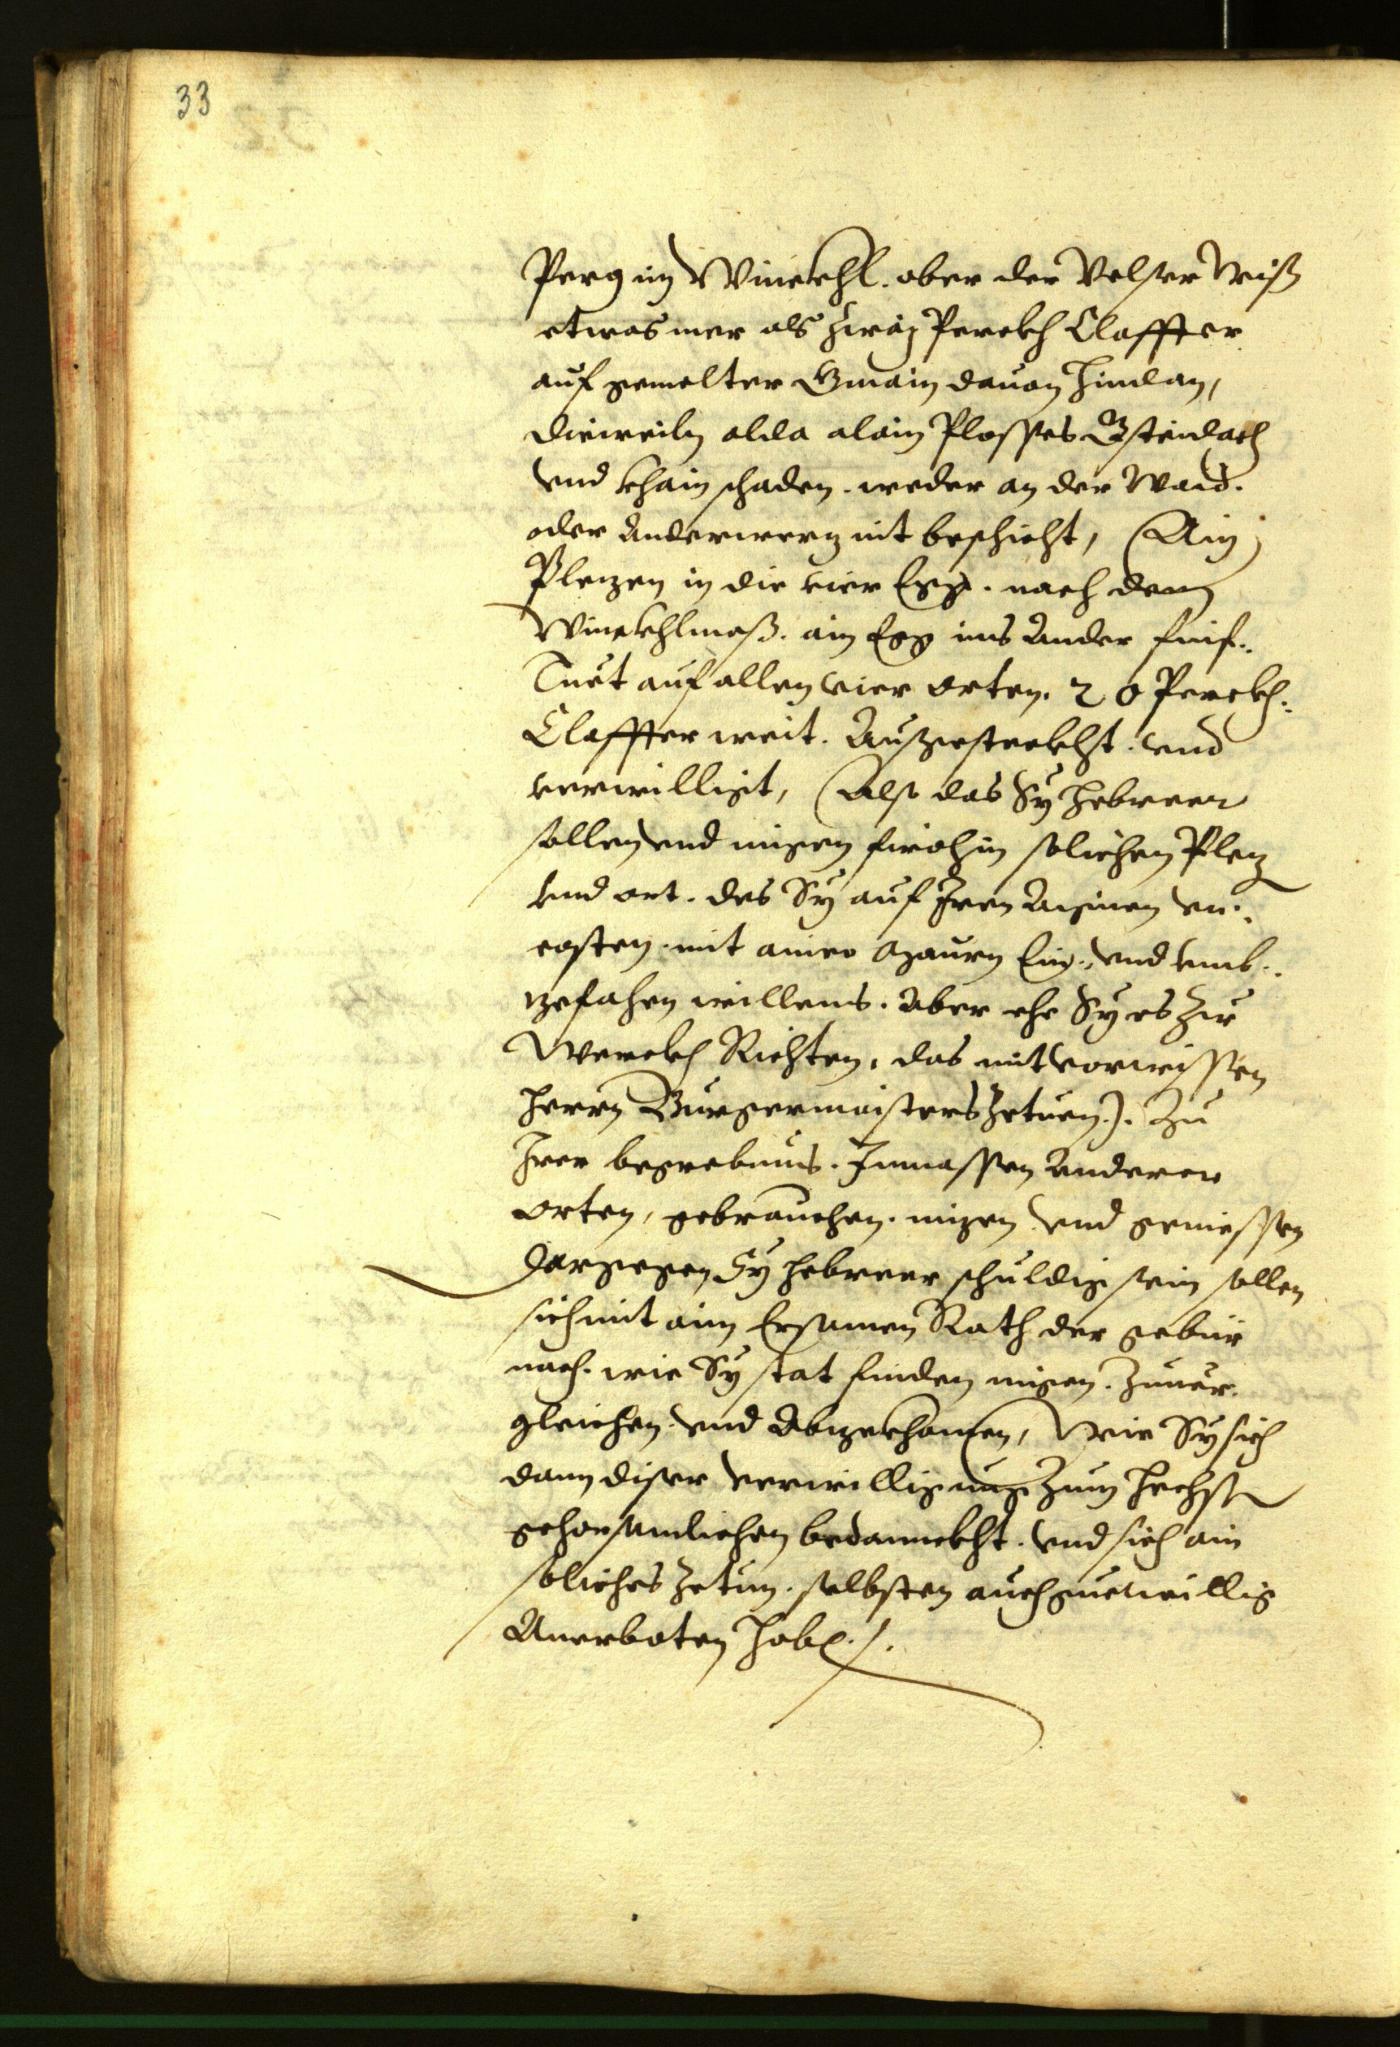 33
Perg im Winckhl. ober der Velser Wiß
etwas mer als zwaÿ Perckh Claffter
auf gemelter Gmain dauon hindan,
dieweiln alda alain Plosses Gstendach
vnd khain schaden. weder an der Waid.
oder Anderwerz nit beschicht, (Ain
Plezen in die vier Egg. nach dem
Winckhlmaß. ain Egg ins Ander finf..
Tuet auf allen vier orten. 20 Perckh.:
Claffter weit. Außgesteckht. vnd
verwilligt, (Also das Sÿ Hebreer
sollen vnd migen firohin solichen Plez
vnd ort. des Sÿ auf Iren Aignen vn..
costen. mit ainer Maurn Ein., vnd vmb..
zefahen willens. Aber ehe Sÿ es Zu
Werckh Richten, das mit vorwissen
herrn Burgermaisters Zetuen). Zu
Irer begrebnus. Inmassen Anderer
orten, gebrauchen. nuzen vnd geniessen
Dargegen Sÿ hebreer schuldig sein sollen
sich mit aim Ersamen Rath der gebür
nach. wie Sÿ stat finden migen. Zuuer.
gleichen. vnd Abzekhomen, Wie Sÿ sich
dann diser verwilligung Zum hechsten
gehorsamlichen bedannckht. vnd sich ain
soliches Zetun. selbsten auch guetwillig
Anerboten haben./.